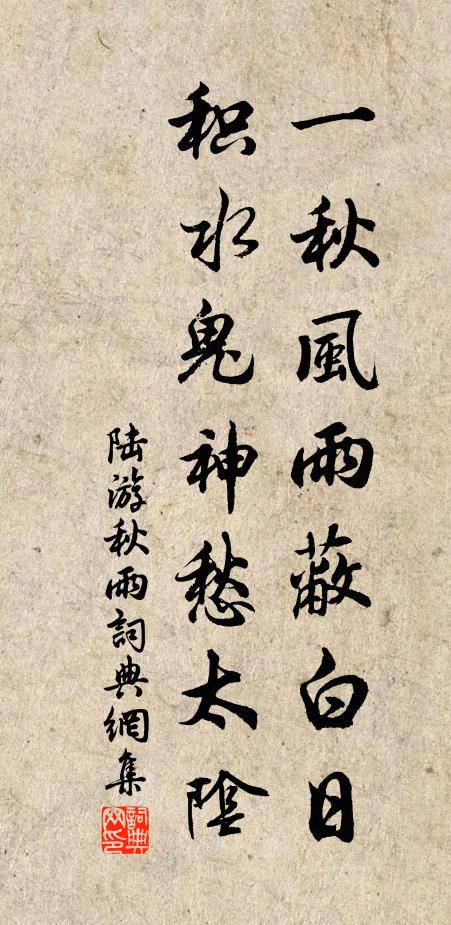 一秋風雨蔽白日
积水鬼神愁太陰
陆游秋雨詞典網集
詞典网印